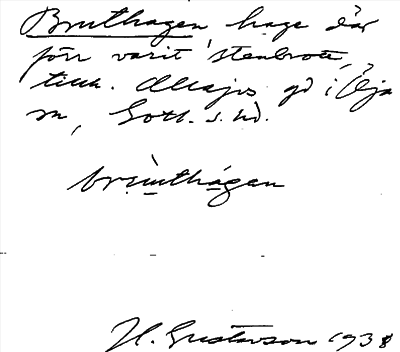 Bruthagen, hage där
förr varit stenbrott,
tillh. Allajos gd i Öja
sn, Gotl. s. hd.
bruthagen
H. Gustavson 1938